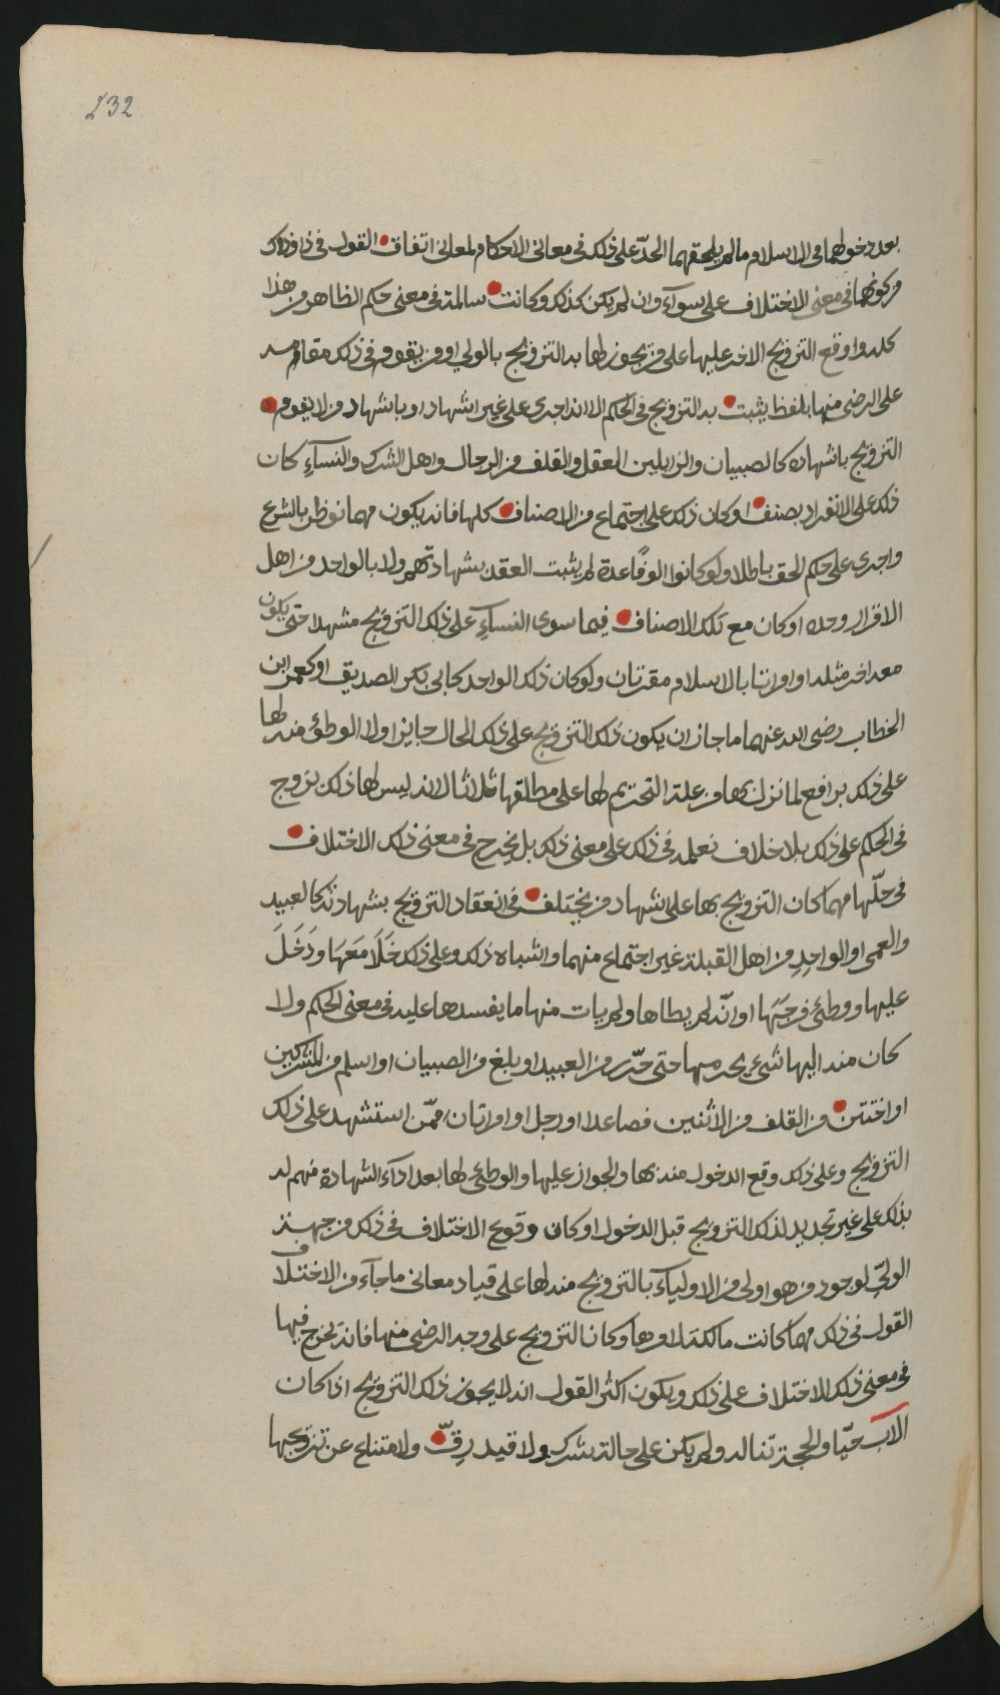 232
بعد دخولهما فى الاسلام ما لم يلحقهما الحدّ على ذلك فى معانى الاحكام لمعانى اتفاق القول فى ذا وذاك
من كونهما فى معنى الاختلاف على سوآء وان لم يكن كذلك وكانت سالمة فى معنى حكم الظاهر من هذا
كله واوقع التزويج الاخر عليها على من يجوز لها به التزويج بالولي او من يقوم فى ذلك مقامه
على الرضى منها بلفظ يثبت به التزويج فى الحكم الا انه اجرى على غير اشهاد او باشهاد من لا يقوم
التزويج باشهاده كالصبيان والزايلين العقل والقلف من الرجال واهل الشرك والنسآء كان
ذلك على الانفراد بصنف او كان ذلك على اجتماع من الاصناف كلها فانه يكون مهما نوظر بالشرع
واجرى على حكم الحق باطلا ولو كانوا الوفًا عدة لم يثبت العقد بشهادتهم ولا بالواحد من اهل
الاقرار وحده او كان مع تلك الاصناف فيما سوى النسآء على ذلك التزويج مشهدا حتى يكون
معه اخر مثله او امراتا بالاسلام مقرتان ولو كان ذلك الواحد كابى بكر الصديق او كعمر ابن
الخطاب رضى الله عنهما ما جاز ان يكون ذلك التزويج على ذلك الحال جايزا ولا الوطئ منه لها
على ذلك برافع لما نزل بها من علة التحريم لها على مطلقها ثلاثا لانه ليس لها ذلك بزوج
فى الحكم على ذلك بلا خلاف نعلمه فى ذلك على معنى ذلك بل يخرج فى معنى ذلك الاختلاف
فى حلّها مهما كان التزويج بها على اشهاد من يختلف فى انعقاد التزويج بشهادته كالعبيد
والعمى او الواحد من اهل القبلة غير اجتماع منهما واشباه ذلك وعلى ذلك خَلَا مَعَهَا ودَخَلَ
عليها ووطئ فرجَهَا او انّه لم يطاها ولم يات منها ما يفسدها عليه فى معنى الحكم ولا
كان منه اليها شىء يحرمها حتى حرّر من العبيد او بلغ من الصبيان او اسلم من المشركين
او اختتن من القلف من الاثنين فصاعدا او رجل او امراتان ممّن استشهد على ذلك
التزويج وعلى ذلك وقع الدخول منه بها والجواز عليها والوطئ لها بعد ادآء الشهادة منهم له
بذلك على غير تجديد لذلك التزويج قبل الدخول او كان وقوع الاختلاف فى ذلك من جهة
الوليّ لوجود من هو اولى من الاوليآء بالتزويج منه لها على قياد معانى ما جآء من الاختلاف
القول فى ذلك مهما كانت مالكة امرها وكان التزويج على وجه الرضى منها فانه يخرج فيها
فى معنى ذلك الاختلاف على ذلك ويكون اكثر القول انه لا يجوز ذلك التزويج اذا كان
الاب حيّا والحجة تناله ولم يكن على حالة شرك ولا قيد رقّ ولا امتناع عن تزويجها